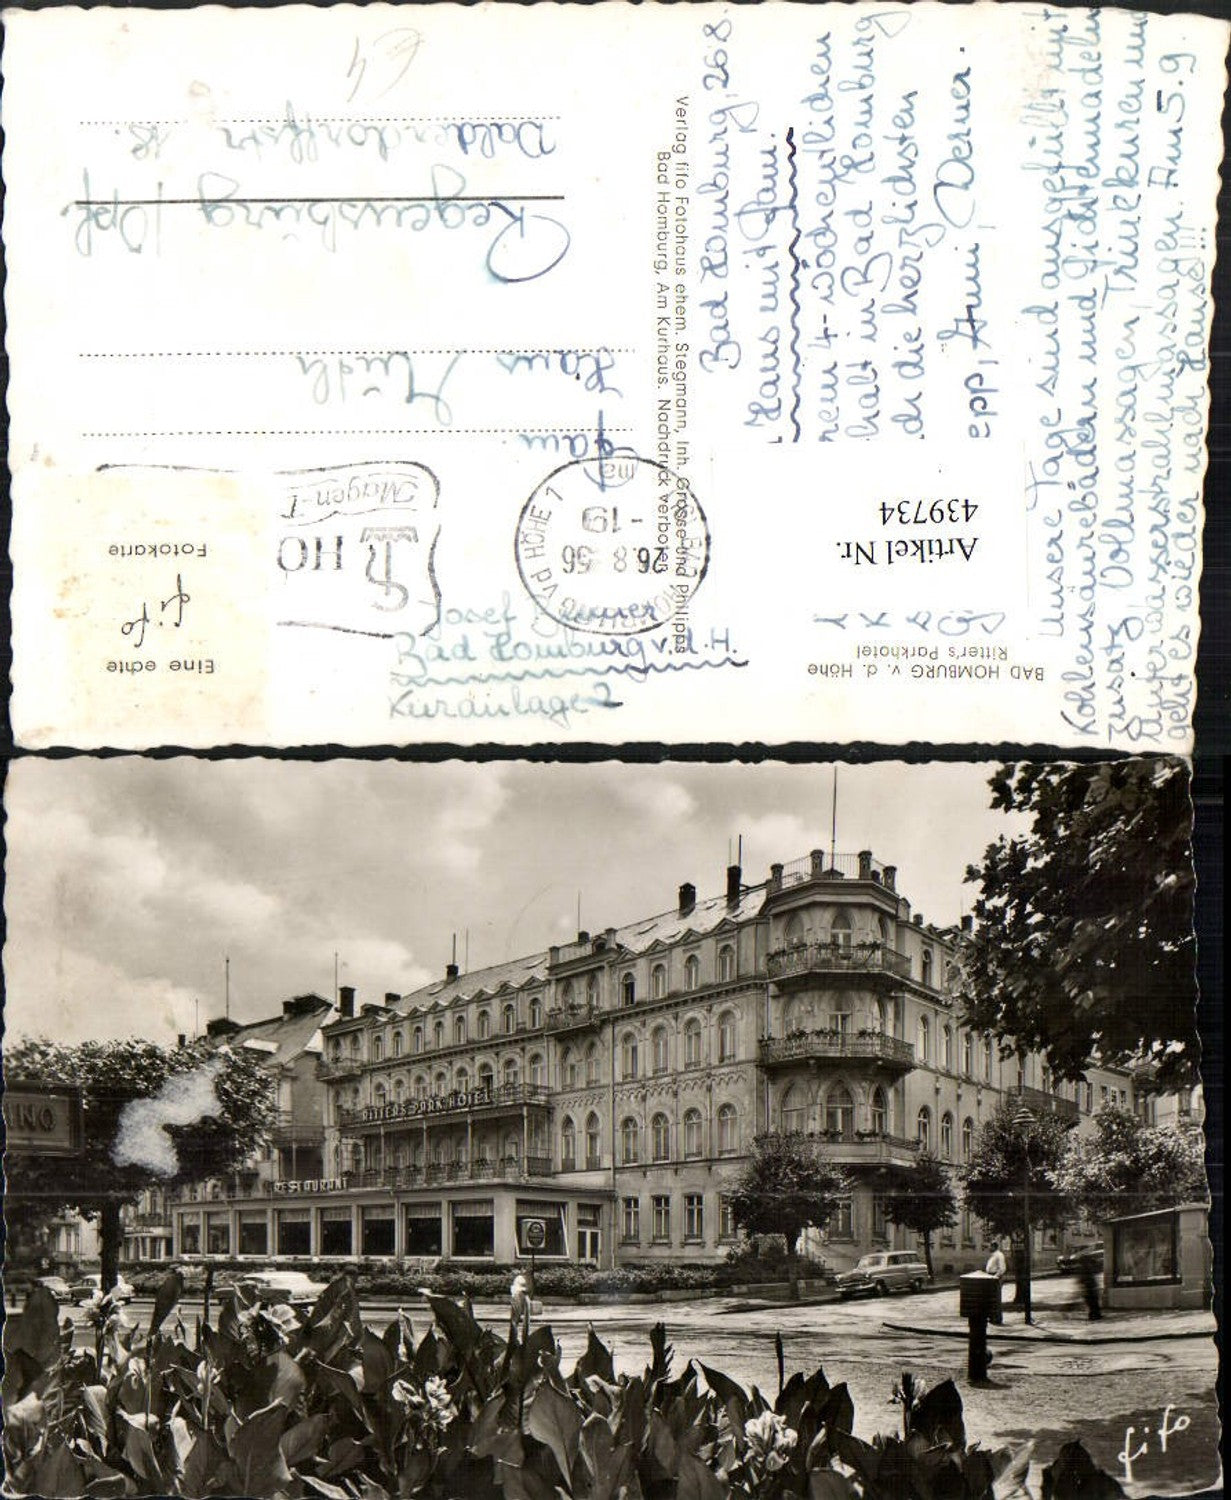 BAD HOMBURG v. d. Höhe
Ritter's Parkhotel
Artikel Nr.
439734
Bad Homburg, 26.8.
Haus mit Fam.
nem 4-wöchentlichen
halt in Bad Homburg
die herzlichsten
epp, Anni, Werner.
Unsere Tage sind ausgefüllt mit
Kohlensäurebädern und Fichtennadeln
zusatz, Vollmassagen, Trinkkuren und
Unterwasserstrahlmassagen. Am 5.9.
geht es wieder nach Hause!!!
Verlag fifo Fotohaus ehem. Stegmann, Inh. Grosse und Philipps
Bad Homburg, Am Kurhaus. Nachdruck verboten
Eine echte
fifo
Fotokarte
Josef
Bad Homburg v. d. H.
Kuranlage 2
BAD HOMBURG v d HÖHE 1
26.8.56
-19
HO
Magen-
Fam.
Hans
Regensburg / Opf.
Dalberdorffstr. 18.
€4
RITTERS PARK HOTEL
RESTAURANT
INO
fifo